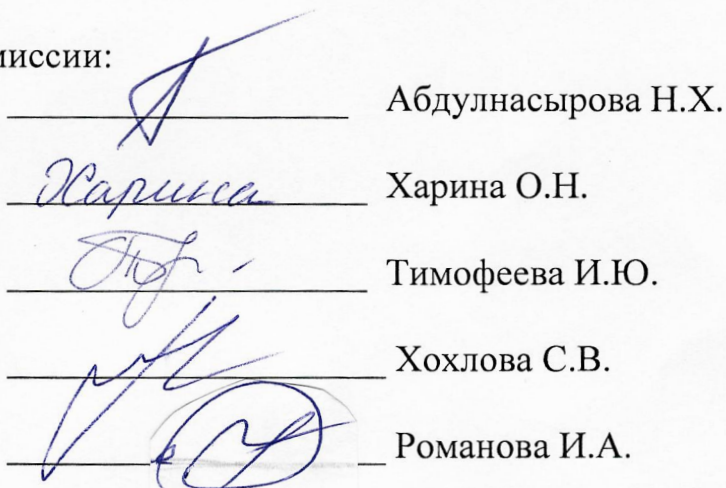 миссии:
Абдулнасырова Н.Х.
Харина Харина О.Н.
Тимофеева И.Ю.
Хохлова С.В.
Романова И.А.